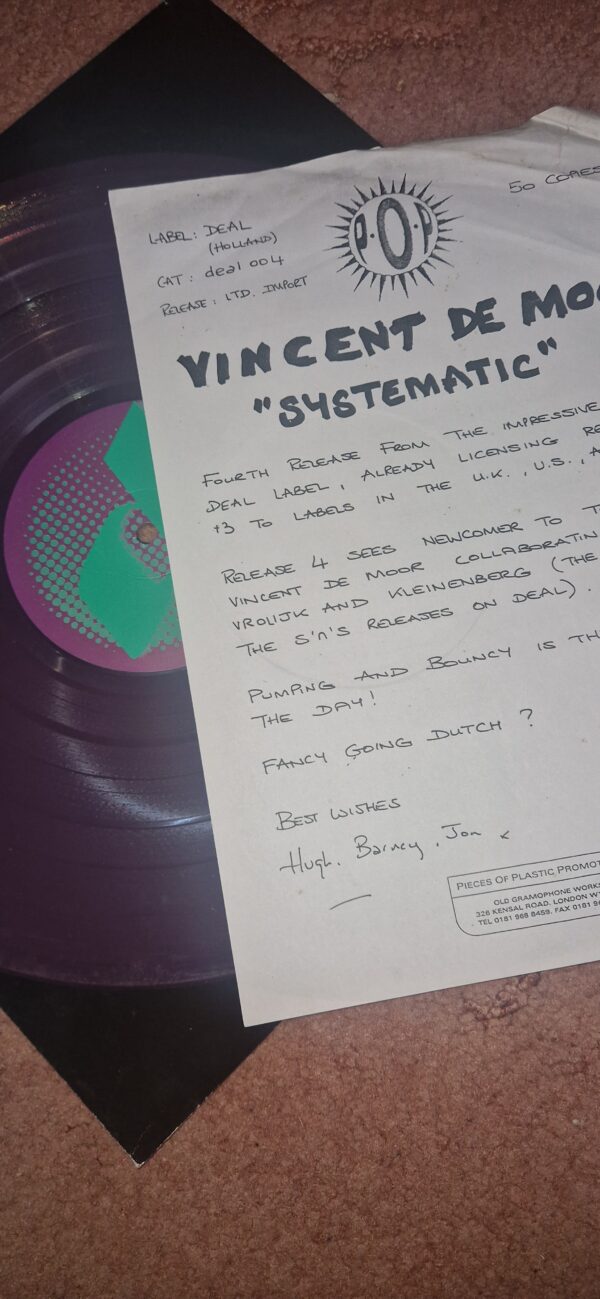 50 COPIES
P.O.P
LABEL: DEAL
(HOLLAND)
CAT: deal 004
RELEASE: LTD. IMPORT
VINCENT DE MOO
"SYSTEMATIC"
FOURTH RELEASE FROM THE IMPRESSIVE
DEAL LABEL, ALREADY LICENSING RE
+3 TO LABELS IN THE U.K., U.S., A
RELEASE 4 SEES NEWCOMER TO T
VINCENT DE MOOR COLLABORATIN
VROLIJK AND KLEINENBERG (THE
THE S'N'S RELEASES ON DEAL).
PUMPING AND BOUNCY IS TH
THE DAY!
FANCY GOING DUTCH?
BEST WISHES
Hugh. Barney. Jon x
PIECES OF PLASTIC PROMOT
OLD GRAMOPHONE WORKS
326 KENSAL ROAD. LONDON W1
TEL 0181 968 8459. FAX 0181 96